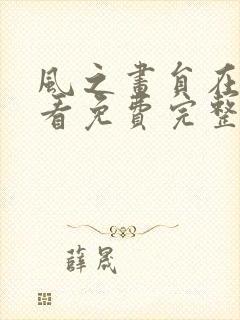 風之畫員在
看免費完整
薛晟